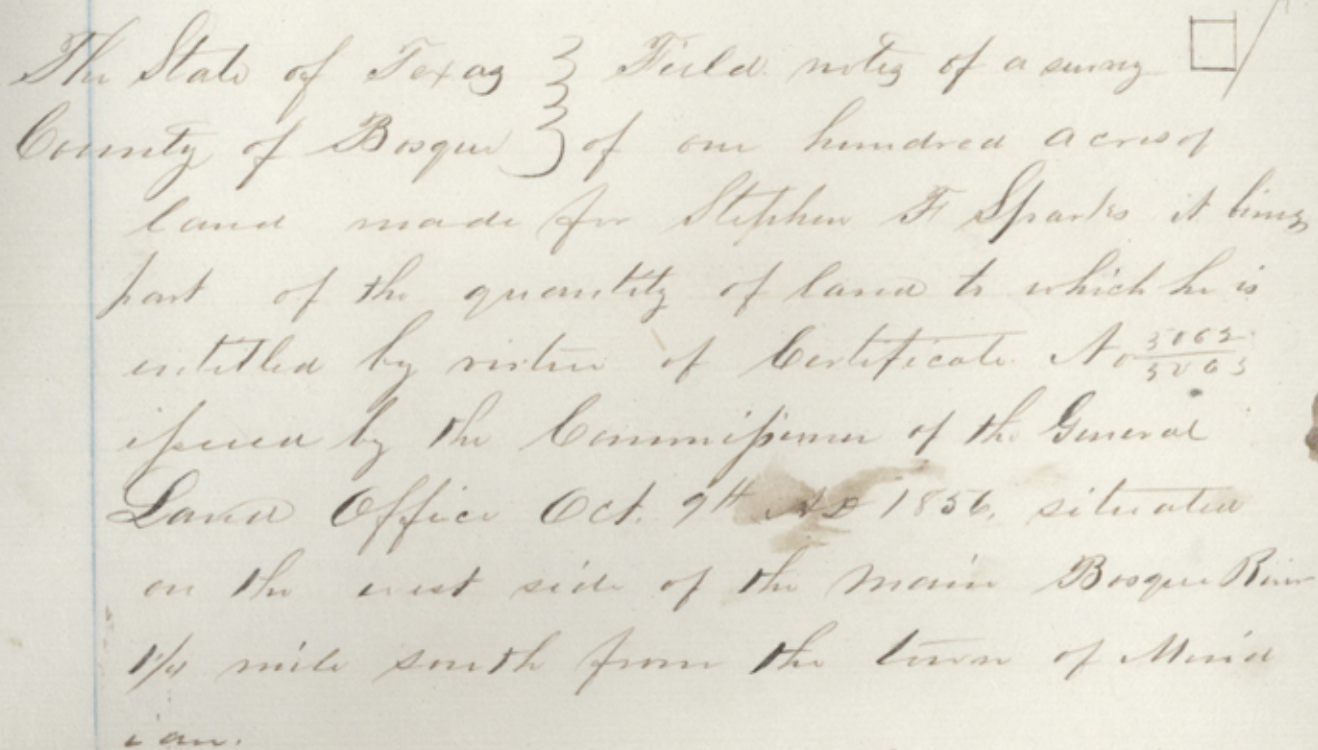 The State of Texas } Field notes of a survey
County of Bosque } of one hundred acres of
land made for Stephen F Sparks it being
part of the quantity of land to which he is
entitled by virtue of Certificate No
issued by the Commissioner of the General
Land Office Oct. 9th AD 1856, situated
on the west side of the main Bosque River
mile south from the town of Merid
ian.